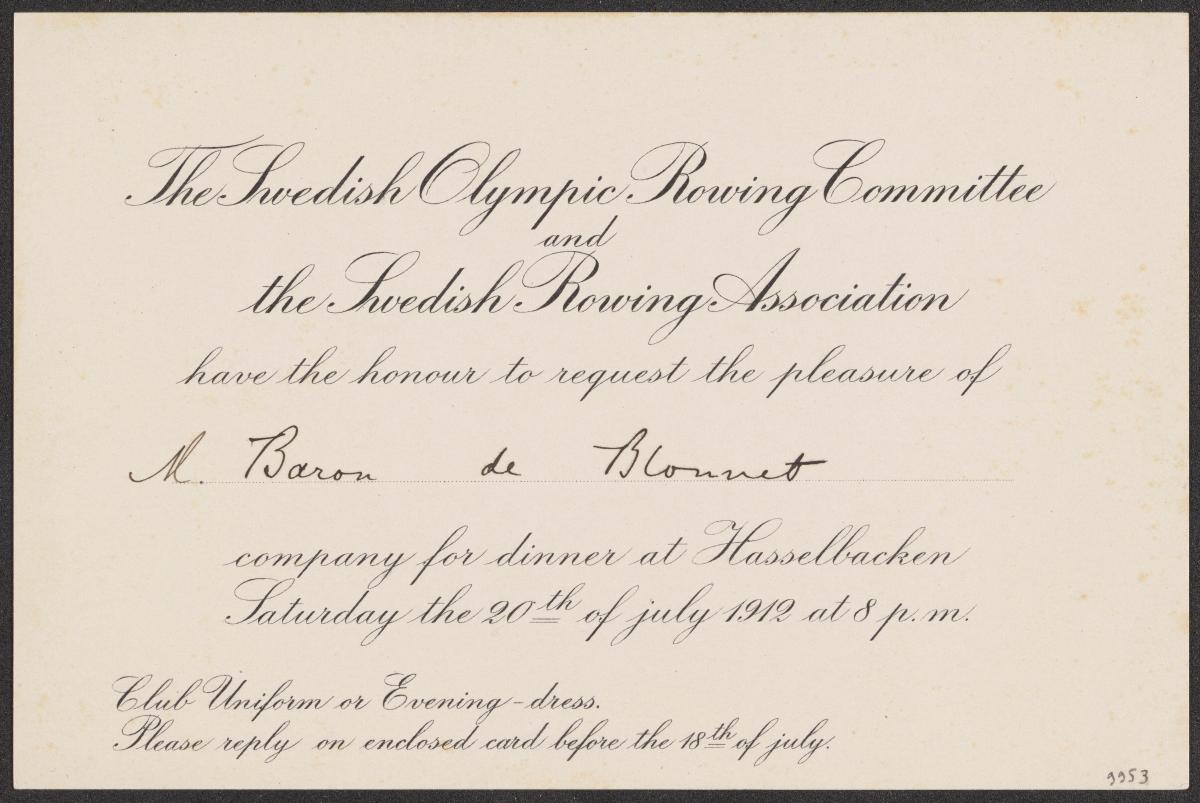 The Swedish Olympic Rowing Committee
and
the Swedish Rowing Association
have the honour to request the pleasure of
M. Baron de Blonnet
company for dinner at Hasselbacken
Saturday the 20th of july 1912 at 8 p.m.
Club Uniform or Evening-dress.
Please reply on enclosed card before the 18th of july.
9953